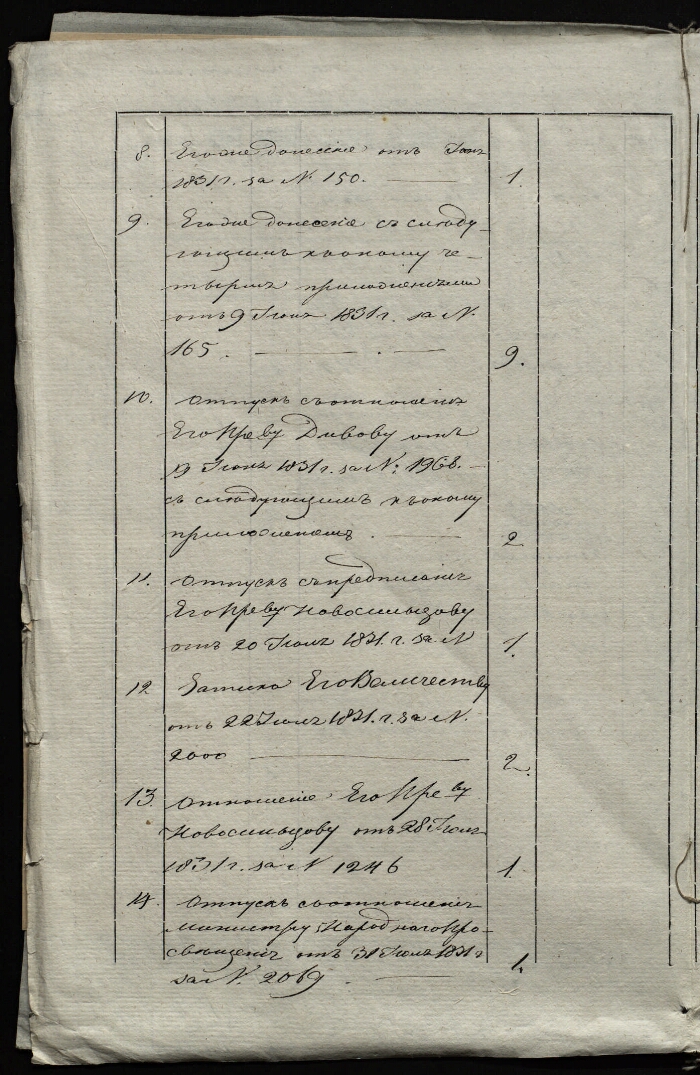 8. Его же донесение отъ Іюля
1831 г. за № 150. 1.
9. Его же донесение съ слѣду-
ющими къ оному че-
тырмя приложеніями
отъ 9 Іюля 1831 г. за №
165. 9.
10. Отпускъ съ отношенія
Его Пре-ву Дивову отъ
19 Іюля 1831 г. за №: 1968.
съ слѣдующимъ къ оному
приложеніемъ. 2
11. Отпускъ съ предписанія
Его Пре-ву Новосильцову
отъ 20 Іюля 1831. г. за № 1.
12 Записка Его Величеству
отъ 22 Іюля 1831. г. за №.
2000 2.
13. Отношеніе Его Пре-ву
Новосильцову отъ 28 Іюля
1831 г. за № 1246 1.
14. Отпускъ съ отношенія
Министру Народнаго Про-
свѣщенія отъ 31 Іюля 1831 г
за №. 2069.